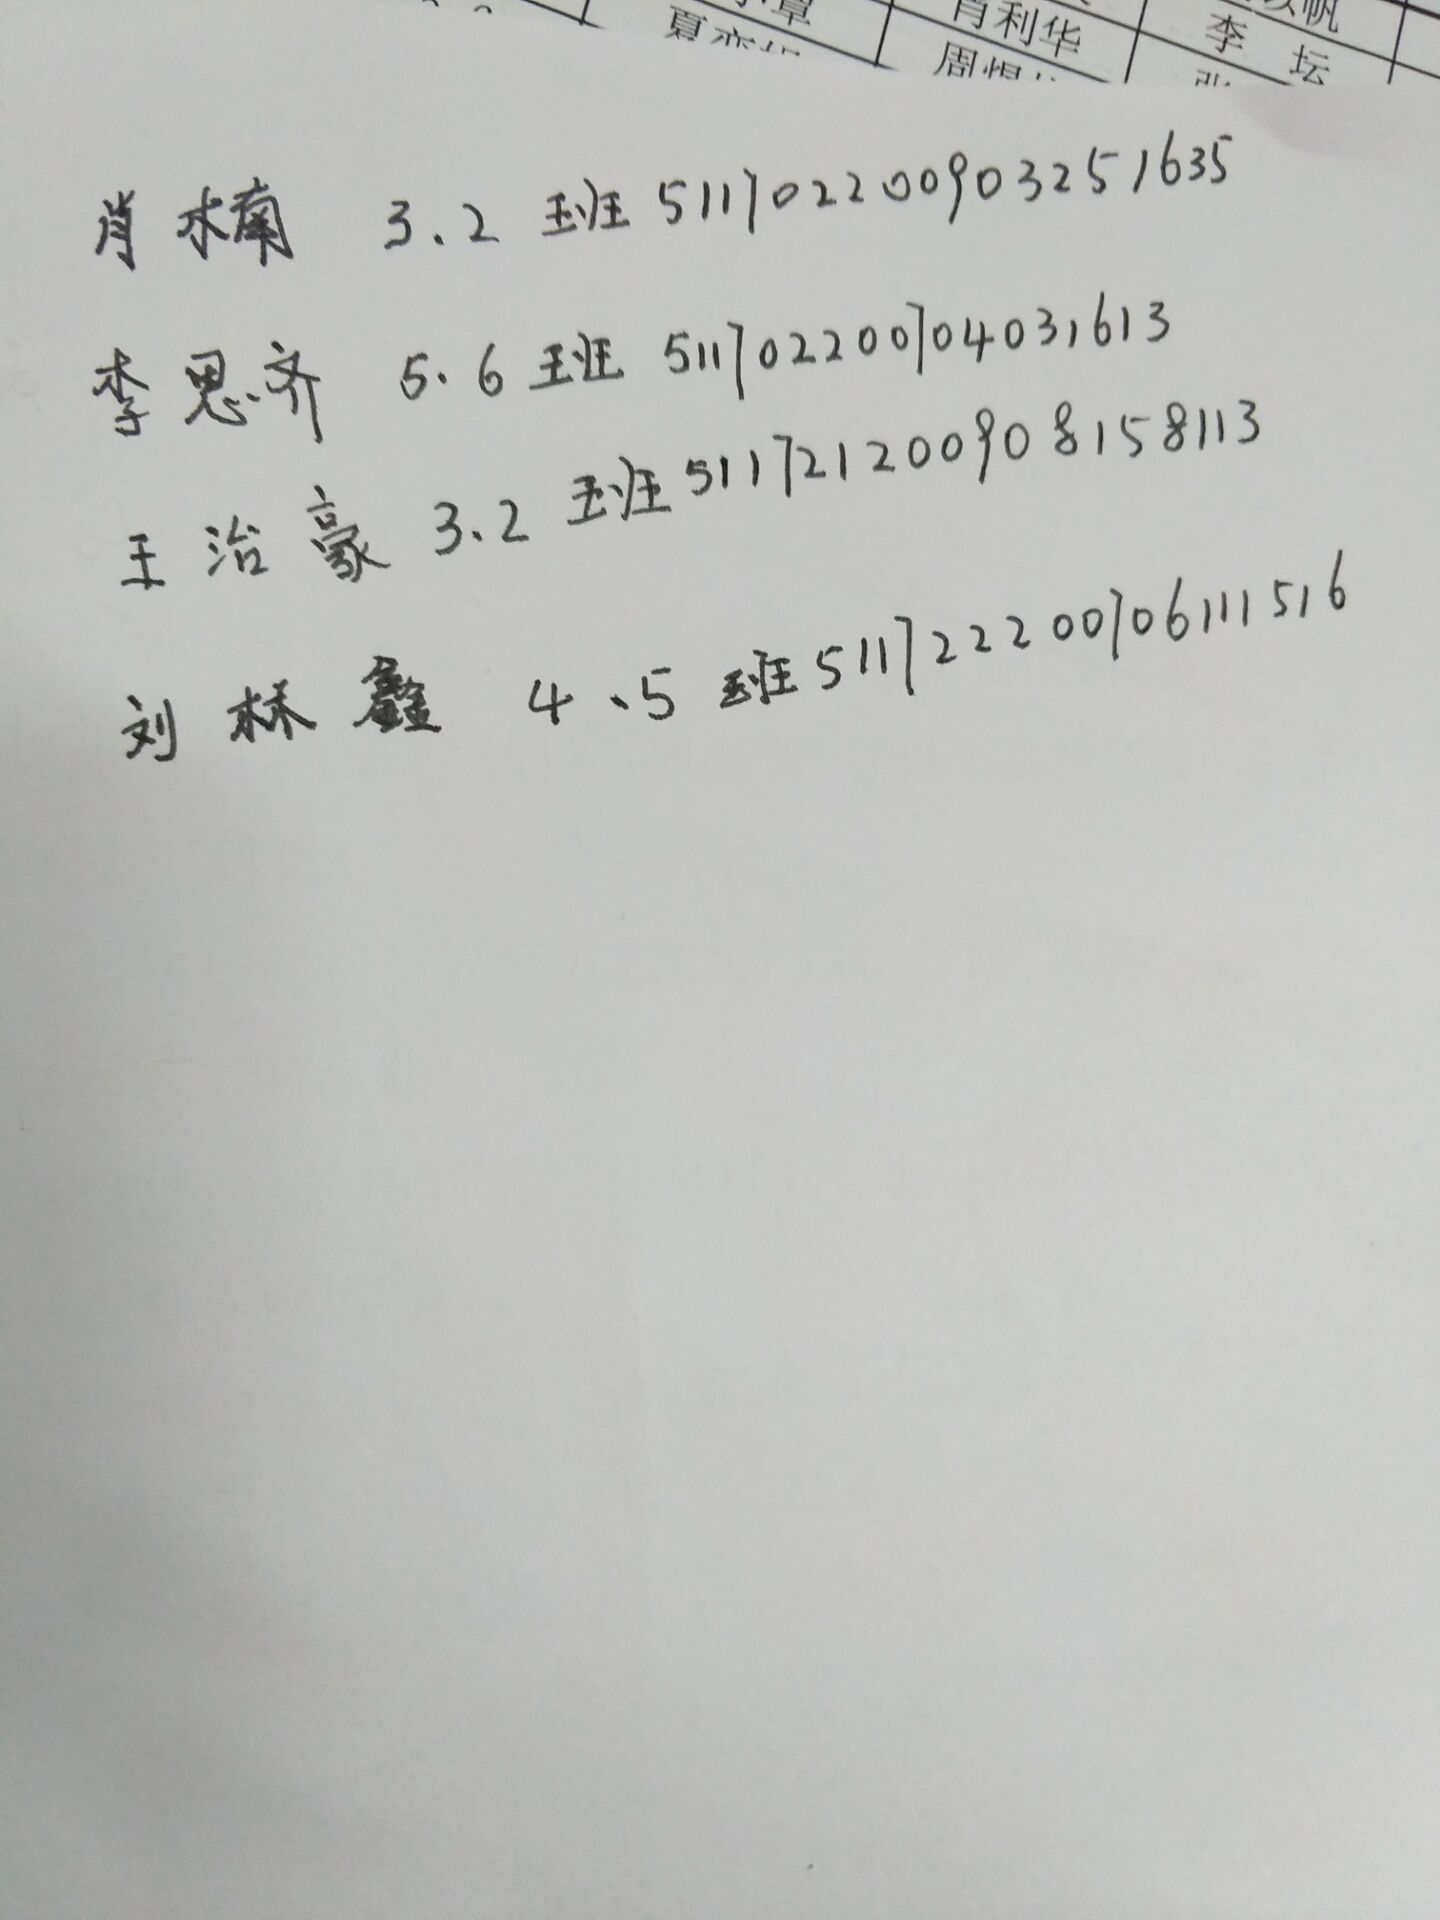 章
肖利华
李 坛
夏
周
肖楠 3.2 班 511702200903251635
李思齐 5.6 班 511702200704031613
王治豪 3.2 班 511721200908158113
刘林鑫 4.5 班 511722200706111516